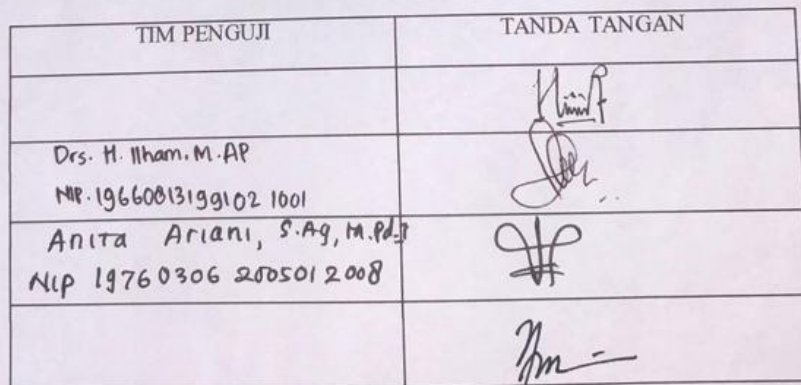 TIM PENGUJI
TANDA TANGAN
Drs. H. Ilham. M. AP
NIP. 19660813199102 1001
Anita Ariani, S.Ag, M.Pd.I
NIP 19760306 2005012008